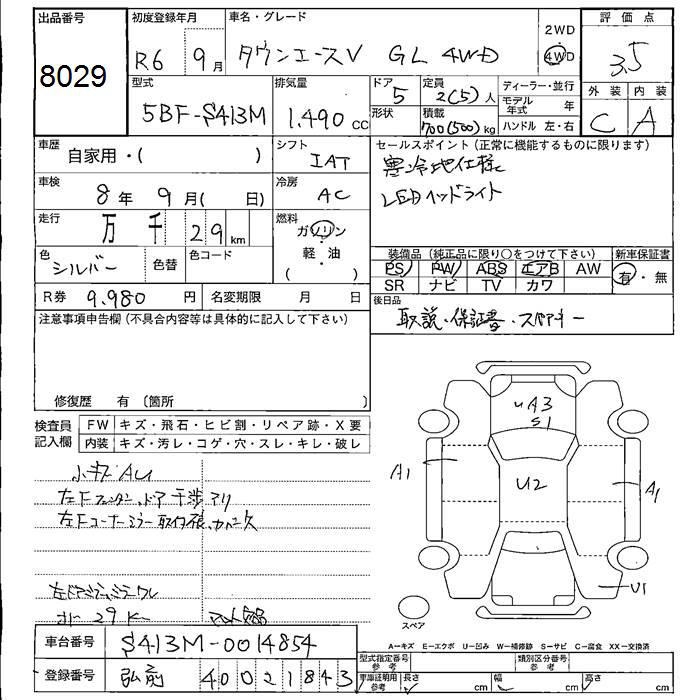 出品番号
8029
初度登録年月
R6 9月
車名・グレード
タウンエースV GL 4WD
2WD
4WD
評価点
3.5
型式
5BF-S413M
排気量
1.490 cc
ドア
5
形状
定員
2(5)人
積載
700(500)kg
ディーラー・並行
モデル年式 年
ハンドル 左・右
外装
C
内装
A
車歴
自家用・( )
シフト
IAT
車検
8年 9月( 日)
冷房
AC
走行
万 千 29 km
燃料
ガソリン
軽・油
( )
色
シルバー
色替
色コード
R券 9.980 円
名変期限 月 日
セールスポイント(正常に機能するものに限ります)
寒冷地仕様
LEDヘッドライト
装備品(純正品に限り○をつけて下さい)
新車保証書
PS PW ABS エアB AW
SR ナビ TV カワ
有・無
後日品
取説・保証書・スペアキー
注意事項申告欄(不具合内容等は具体的に記入して下さい)
修復歴 有〔箇所 〕
検査員記入欄
FW キズ・飛石・ヒビ割・リペア跡・X要
内装 キズ・汚レ・コゲ・穴・スレ・キレ・破レ
小キズAU
左Fフェンダー、ドア干渉アリ
左Fコーナーミラー取付
左ドアミラー
29K
uA3
S1
A1
U2
A1
U1
スペア
A-キズ E-エクボ U-凹み W-補修跡 S-サビ C-腐食 XX-交換済
車台番号 S413M-0014854
登録番号 弘前 400 2 1843
型式指定番号 参考
類別区分番号 参考
車庫証明用 参考
長さ cm
幅 cm
高さ cm